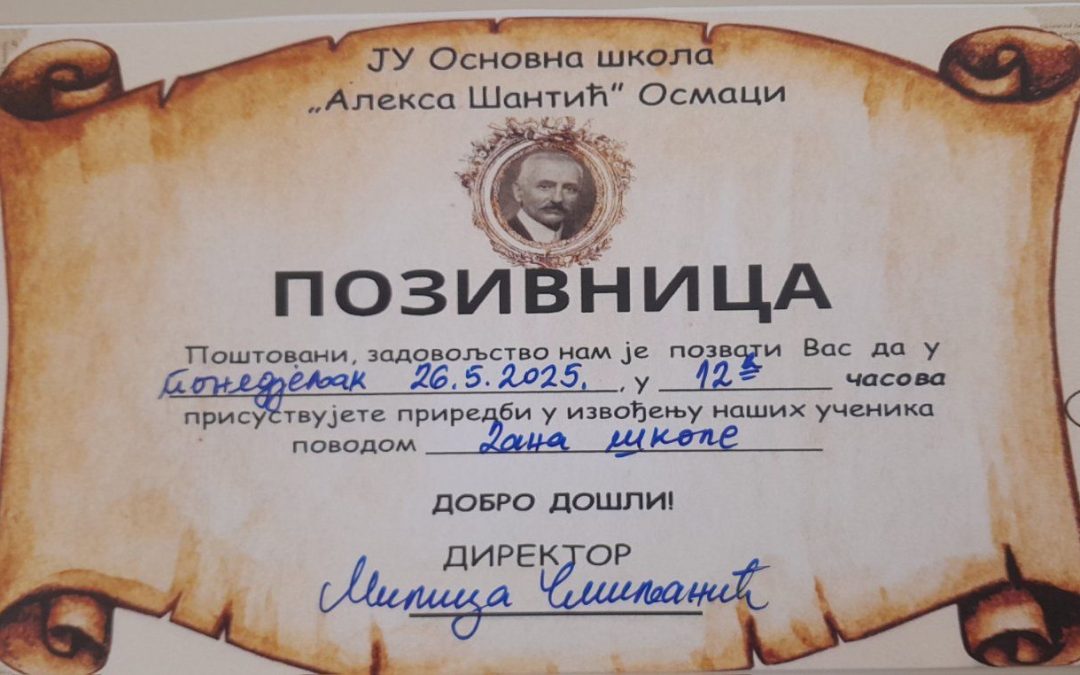 ЈУ Основна школа
„Алекса Шантић“ Осмаци
ПОЗИВНИЦА
Поштовани, задовољство нам је позвати Вас да у
понедјељак 26.5.2025. , у 12 часова
присуствујете приредби у извођењу наших ученика
поводом Дана школе
ДОБРО ДОШЛИ!
ДИРЕКТОР
Милица